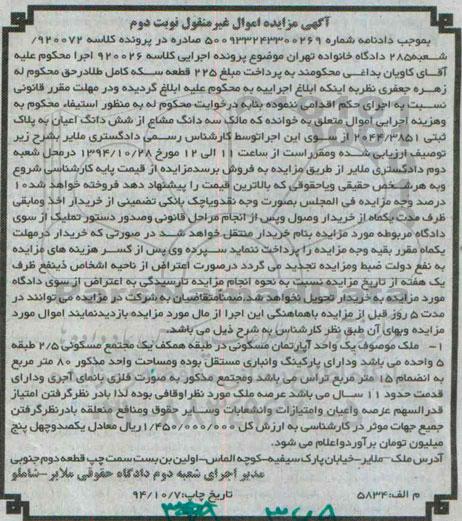 آگهی مزایده اموال غیرمنقول نوبت دوم
بموجب دادنامه شماره ۵۰۰۹۳۳۲۴۳۳۰۰۲۶۹ صادره در پرونده کلاسه ۹۲۰۰۷۲/
شعبه۲۸۵ دادگاه خانواده تهران موضوع پرونده اجرایی کلاسه ۹۲۰۰۲۶ اجرا محکوم علیه
آقای کاویان بداغی محکومند به پرداخت مبلغ ۲۲۵ قطعه سکه کامل طلادرحق محکوم له
زهره جعفری نظربه اینکه ابلاغ اجراییه به محکوم علیه ابلاغ گردیده ودر مهلت مقرر قانونی
نسبت به اجرای حکم اقدامی ننموده بنابه درخواست محکوم له به منظور استیفاء محکوم به
وهزینه اجرایی اموال متعلق به خوانده که مالک سه دانگ مشاع از شش دانگ اعیان به پلاک
ثبتی ۲۰۴۴/۳۸۵۱ از سوی این اجراتوسط کارشناس رسمی دادگستری ملایر بشرح زیر
توصیف ارزیابی شده ومقرراست از ساعت ۱۱ الی ۱۲ مورخ ۱۳۹۴/۱۰/۲۸ درمحل شعبه
دوم دادگستری ملایر از طریق مزایده به فروش برسدمزایده از قیمت پایه کارشناسی شروع
وبه هرشخص حقیقی ویاحقوقی که بالاترین قیمت را پیشنهاد دهد فروخته خواهد شد۱۰
درصد وجه مزایده فی المجلس بصورت وجه نقدویاچک بانکی تضمینی از خریدار اخذ ومابقی
ظرف مدت یکماه از خریدار وصول وپس از انجام مراحل قانونی وصدور دستور تملیک از سوی
دادگاه مربوطه مورد مزایده بنام خریدار منتقل خواهد شد در صورتی که خریدار درمهلت
یکماه مقرر بقیه وجه مزایده را پرداخت ننماید سپرده وی پس از کسر هزینه های مزایده
به نفع دولت ضبط ومزایده تجدید می گردد درصورت اعتراض از ناحیه اشخاص ذینفع ظرف
یک هفته از تاریخ مزایده نسبت به نحوه انجام مزایده تارسیدگی به اعتراض از سوی دادگاه
مورد مزایده به خریدار تحویل نخواهد شد.ضمنامتقاضیان به شرکت در مزایده می توانند در
مدت ۵ روز قبل از مزایده باهماهنگی این اجرا از مال مورد مزایده بازدیدنمایند اموال مورد
مزایده وبهای آن طبق نظر کارشناس به شرح ذیل می باشد.
۱- ملک موصوف یک واحد آپارتمان مسکونی در طبقه همکف یک مجتمع مسکونی ۲/۵ طبقه
۵ واحده می باشد ودارای پارکینگ وانباری مستقل بوده ومساحت واحد مذکور ۸۰ متر مربع
به انضمام ۱۵ متر مربع تراس می باشد ومجتمع مذکور به صورت فلزی بانمای آجری ودارای
قدمت حدود ۱۱ سال می باشد عرصه ملک مورد نظراوقافی بوده لذا بادر نظرگرفتن امتیاز
قدرالسهم عرصه واعیان وامتیازات وانشعابات وسایر حقوق ومنافع متعلقه بادرنظرگرفتن
جمیع جهات موثر در کارشناسی به ارزش کل ۱/۴۵۰/۰۰۰/۰۰۰ریال معادل یکصدوچهل پنج
میلیون تومان برآورداعلام می شود.
آدرس ملک-ملایر-خیابان پارک سیفیه-کوچه الماس-اولین بن بست سمت چپ قطعه دوم جنوبی
مدیر اجرای شعبه دوم دادگاه حقوقی ملایر-شاملو
م الف:۵۸۳۴ تاریخ چاپ:۹۴/۱۰/۷